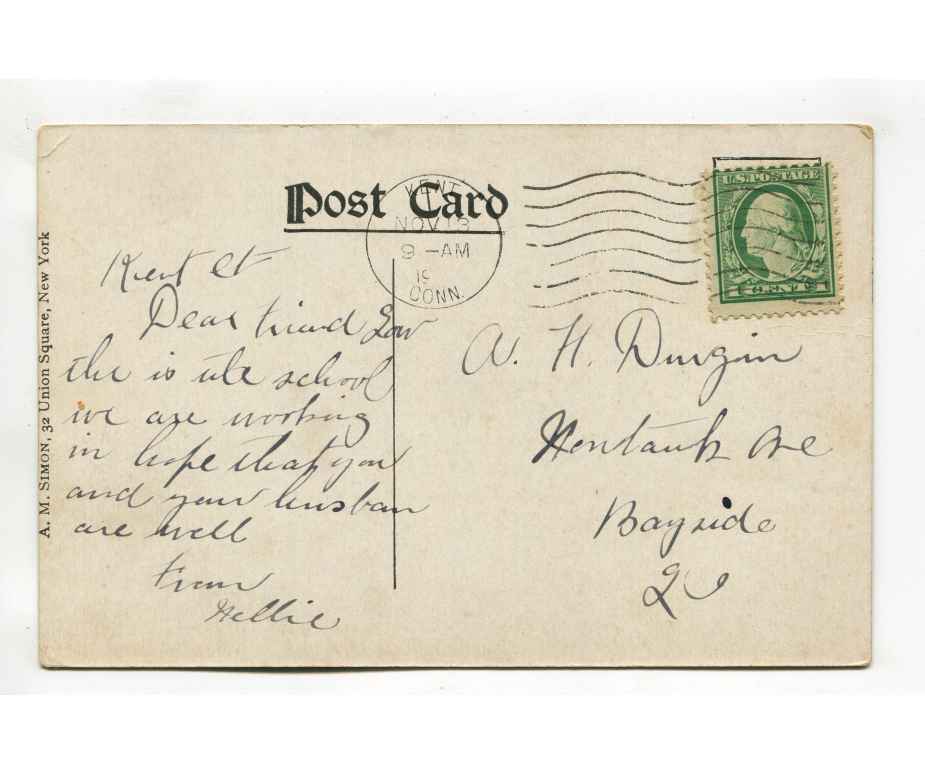 Post Card
KENT
NOV 13
9 -AM
19
CONN.
U.S. POSTAGE
1 CENT 1
A. M. SIMON, 32 Union Square, New York
Kent Ct
Dear friend
the is the school
we are working
in hope that you
and your husban
are well
From
Nellie
A. H. Durgin
Ave
Bayside